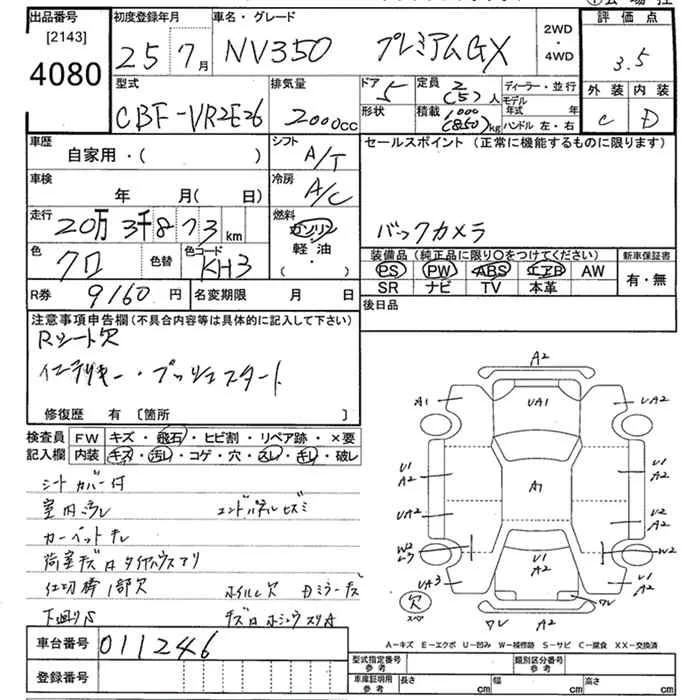 出品番号 初度登録年月 車名・グレード 2WD・4WD 評価点
[2143]
4080 25年 7月 NV350 プレミアムGX 3.5
型式 排気量 ドア 定員 ディーラー・並行 外装 内装
CBF-VR2E26 2000cc 5 2(5)人 モデル年式 年 C D
形状 積載 1000(850)kg ハンドル 左・右
車歴 シフト セールスポイント(正常に機能するものに限ります)
自家用・( ) A/T
車検 冷房
年 月(日) A/C
走行 燃料 バックカメラ
20万3千873km ガソリン・軽油・( )
色 色替 色コード 装備品(純正品に限り○をつけてください) 新車保証書
クロ KH3 PS PW ABS エアB AW 有・無
SR ナビ TV 本革
R券 9160円 名変期限 月 日 後日品
注意事項申告欄(不具合内容等は具体的に記入して下さい)
Rシート欠
インテリキー・プッシュスタート
修復歴 有 [箇所 ]
検査員 FW キズ・飛石・ヒビ割・リペア跡・×要
記入欄 内装 キズ・汚レ・コゲ・穴・スレ・キレ・破レ
シートカバー付
室内ヨゴレ エンドパネルヒズミ
カーペットキレ
荷室キズ タイヤハウス
仕切棒1部欠 ホイルC欠 Dミラーキズ
下廻りS
A2
A1 UA1 UA2
U1 A2 A7 U1 A2
UA2 U2 A2
W2 U1 A2 W2
UA3
欠 スペア ワレ A2 ワレ
A-キズ E-エクボ U-凹み W-補修跡 S-サビ C-腐食 XX-交換済
車台番号 011246
登録番号
型式指定番号 参考 類別区分番号 参考
車庫証明用 参考 長さ cm 幅 cm 高さ cm